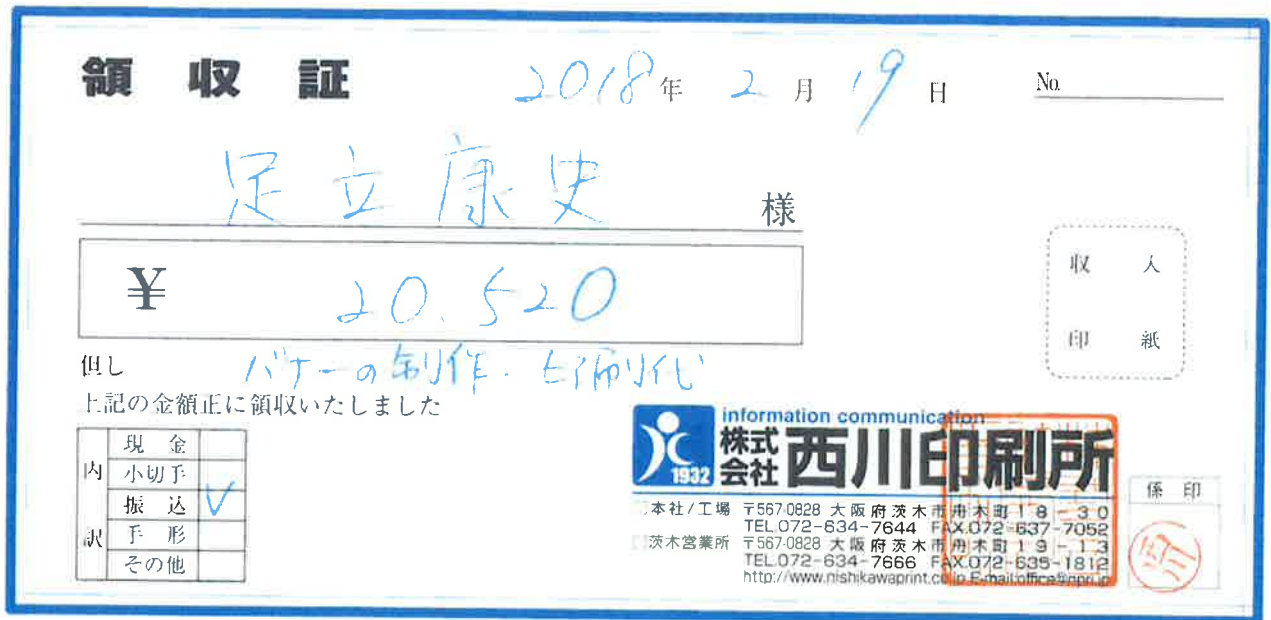 領収証 2018年2月19日 No.
足立康史 様
¥ 20,520
但し バナーの制作・印刷代
上記の金額正に領収いたしました
収入
印紙
内訳
現金
小切手
振込 ✓
手形
その他
information communication
1932 株式会社 西川印刷所
本社/工場 〒567-0828 大阪府茨木市舟木町18-30
TEL.072-634-7644 FAX.072-637-7052
茨木営業所 〒567-0828 大阪府茨木市舟木町19-13
TEL.072-634-7666 FAX.072-635-1812
http://www.nishikawaprint.co.jp E-mail:office@npri.jp
係印
西川